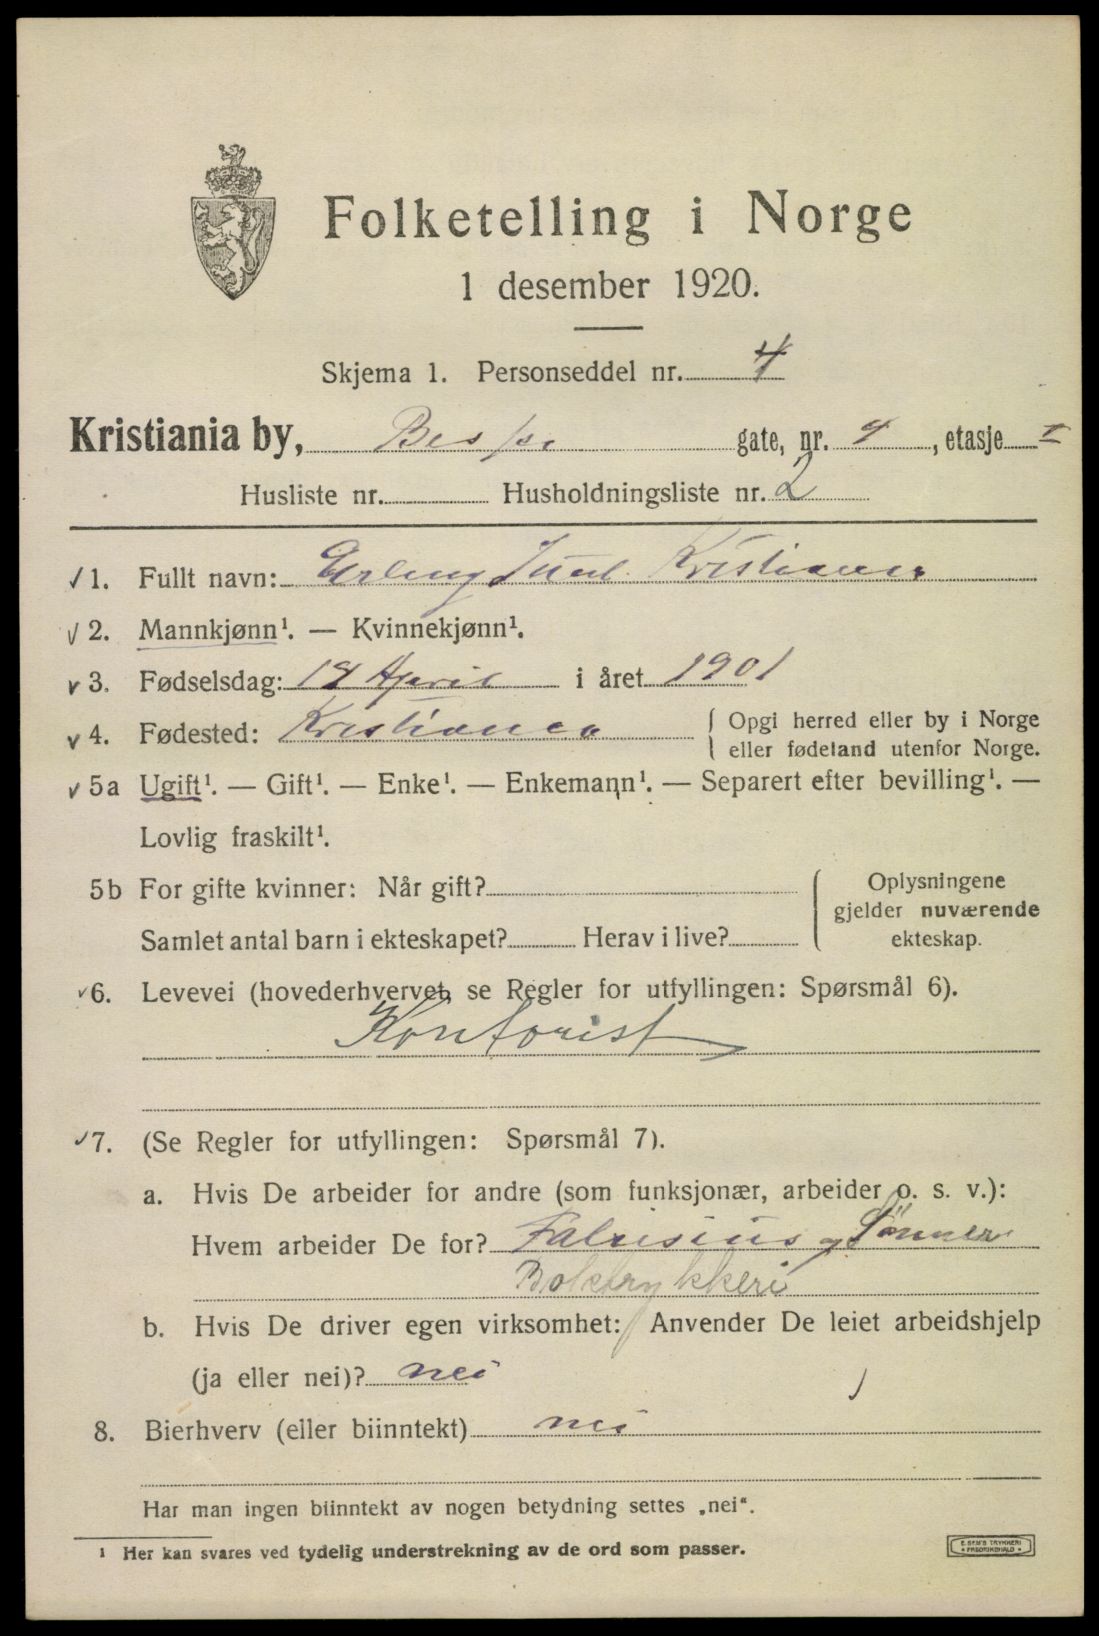 Folketelling i Norge
1 desember 1920.
Skjema 1. Personseddel nr. 4
Kristiania by, gate, nr. 4, etasje I
Husliste nr. Husholdningsliste nr. 2
✓ 1. Fullt navn: Erling Juul Kristiansen
✓ 2. Mannkjønn¹. — Kvinnekjønn¹.
✓ 3. Fødselsdag: April i året 1901
✓ 4. Fødested: Kristiania { Opgi herred eller by i Norge
eller fødeland utenfor Norge.
✓ 5a Ugift¹. — Gift¹. — Enke¹. — Enkemann¹. — Separert efter bevilling¹. —
Lovlig fraskilt¹.
5b For gifte kvinner: Når gift? { Oplysningene
gjelder nuværende
Samlet antal barn i ekteskapet? Herav i live? ekteskap.
✓ 6. Levevei (hovederhvervet, se Regler for utfyllingen: Spørsmål 6).
Kontorist
✓ 7. (Se Regler for utfyllingen: Spørsmål 7).
a. Hvis De arbeider for andre (som funksjonær, arbeider o. s. v.):
Hvem arbeider De for? Fabrisius og Sønner
Boktrykkeri
b. Hvis De driver egen virksomhet: Anvender De leiet arbeidshjelp
(ja eller nei)? nei
8. Bierhverv (eller biinntekt) nei
Har man ingen biinntekt av nogen betydning settes „nei“.
¹ Her kan svares ved tydelig understrekning av de ord som passer.
E. SEM'S TRYKKERI
FREDRIKSHALD